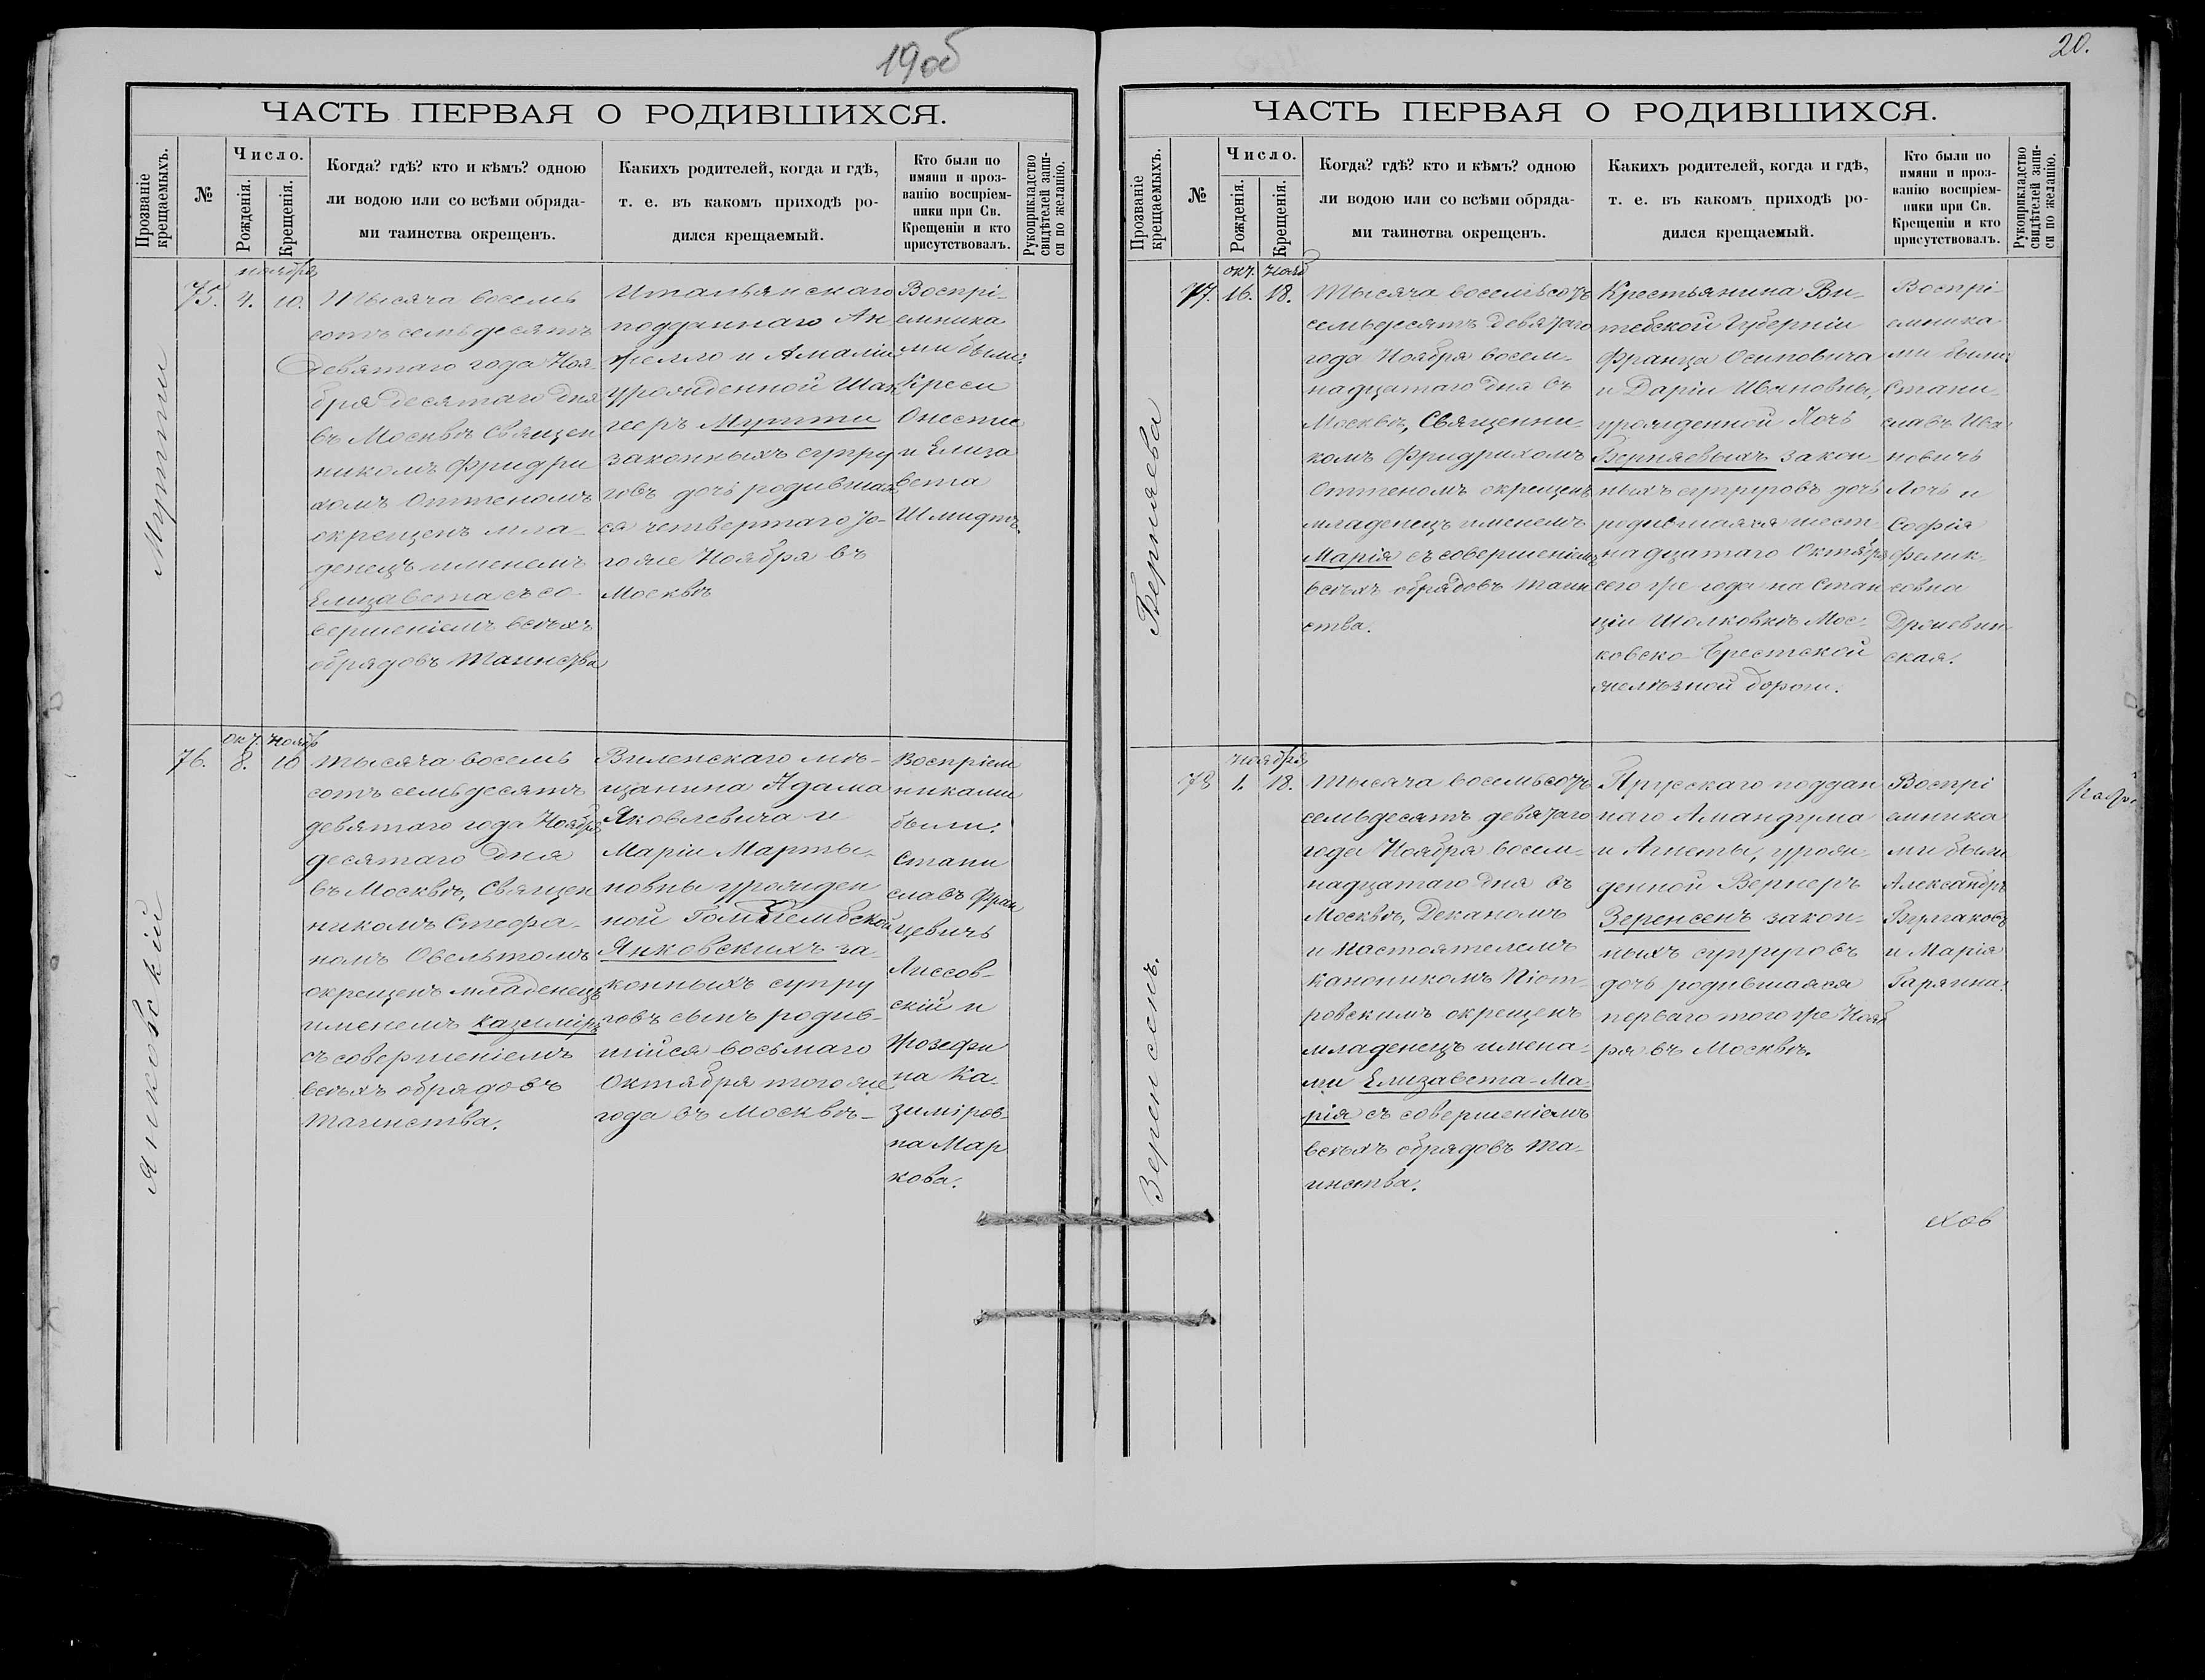 19 об
ЧАСТЬ ПЕРВАЯ О РОДИВШИХСЯ.
Прозваніе крещаемыхъ.
№
Число.
Рожденія.
Крещенія.
Когда? гдѣ? кто и кѣмъ? одною
ли водою или со всѣми обряда-
ми таинства окрещенъ.
Какихъ родителей, когда и гдѣ,
т. е. въ какомъ приходѣ ро-
дился крещаемый.
Кто были по
имяни и проз-
ванію воспріем-
ники при Св.
Крещеніи и кто
присутствовалъ.
Рукоприкладство
свидѣтелей запи-
си по желанію.
Мутти
75.
ноября
4. 10.
Тысяча восемь
сотъ семьдесятъ
девятаго года Ноя-
бря десятаго дня
въ Москвѣ Священ
никомъ Фридри
хомъ Оттеномъ
окрещенъ мла-
денецъ именемъ
Елизавета съ со-
вершеніемъ всѣхъ
обрядовъ Таинства
Итальянскаго
подданнаго Ан
и Амаліи
урожденной
Мутти
законныхъ супру
говъ дочь родившая
ся четвертаго То-
гоже Ноября въ
Москвѣ
Воспрі-
емника
ми были:
Креси
Онестие
и Елиза
вета
Шмидтъ
Янковскій
76.
окт. ноябр
8. 10
тысяча восемь
сотъ семьдесятъ
девятаго года Ноября
десятаго дня
въ Москвѣ, Священ
никомъ Стефа-
номъ Овельтомъ
окрещенъ младенецъ
именемъ Казиміръ
съ совершеніемъ
всѣхъ обрядовъ
Таинства.
Виленскаго мѣ-
щанина Адама
Яковлевича и
Маріи Марты-
новны урожден
ной
Янковскихъ за-
конныхъ супру
говъ сынъ родив-
шійся восьмаго
Октября того же
года въ Москвѣ-
Воспріем
никами
были:
Стани
славъ Фран
цевичъ
Лиссов-
скій и
Юзефи
на Ка-
зиміров-
на Мар
кова.
20.
ЧАСТЬ ПЕРВАЯ О РОДИВШИХСЯ.
Прозваніе крещаемыхъ.
№
Число.
Рожденія.
Крещенія.
Когда? гдѣ? кто и кѣмъ? одною
ли водою или со всѣми обряда-
ми таинства окрещенъ.
Какихъ родителей, когда и гдѣ,
т. е. въ какомъ приходѣ ро-
дился крещаемый.
Кто были по
имяни и проз-
ванію воспріем-
ники при Св.
Крещеніи и кто
присутствовалъ.
Рукоприкладство
свидѣтелей запи-
си по желанію.
Верняева
77.
окт. нояб
16. 18.
Тысяча восемьсотъ
семьдесятъ девятаго
года Ноября восем-
надцатаго дня въ
Москвѣ, Священни-
комъ Фридрихомъ
Оттеномъ окрещенъ
младенецъ именемъ
Марія съ совершеніемъ
всѣхъ обрядовъ Таин
ства.
Крестьянина Ви-
тебской Губерніи
Франца Осиповича
и Даріи Ивановны,
урожденной Лочь
Верняевыхъ закон-
ныхъ супруговъ дочь
родившаяся шест-
надцатаго Октября
сего же года на Стан
ціи Шолковкѣ Мос-
ковско-Брестской
желѣзной дороги.
Воспрі-
емника
ми были
Стани-
славъ Ива
новичъ
Лочь и
Софія
Феликс-
совна
ская.
78
ноября
1. 18.
Зеренсенъ.
Тысяча восемьсотъ
семьдесятъ девятаго
года Ноября восем-
надцатаго дня въ
Москвѣ, Деканомъ
и Настоятелемъ
Каноникомъ Піот-
ровскимъ окрещенъ
младенецъ имена-
ми Елизавета-Ма-
рія съ совершеніемъ
всѣхъ обрядовъ Та-
инства.
Прусскаго поддан
наго Амандума
и Агнеты, урож-
денной Вернеръ
Зеренсенъ закон-
ныхъ супруговъ
дочь родившаяся
перваго того же Нояб
ря въ Москвѣ.
Воспрі
емника
ми были
Александръ
Булгаковъ
и Марія